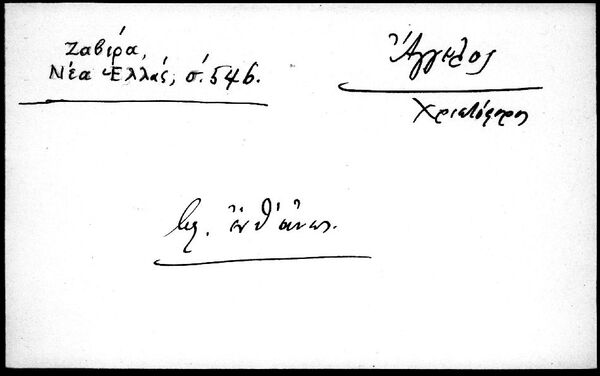 Ζαβίρα,
Νέα Ἑλλάς, σ. 546.
Ἄγγελος
Χριστόφορος
βλ. ἔνθ' ἄνω.